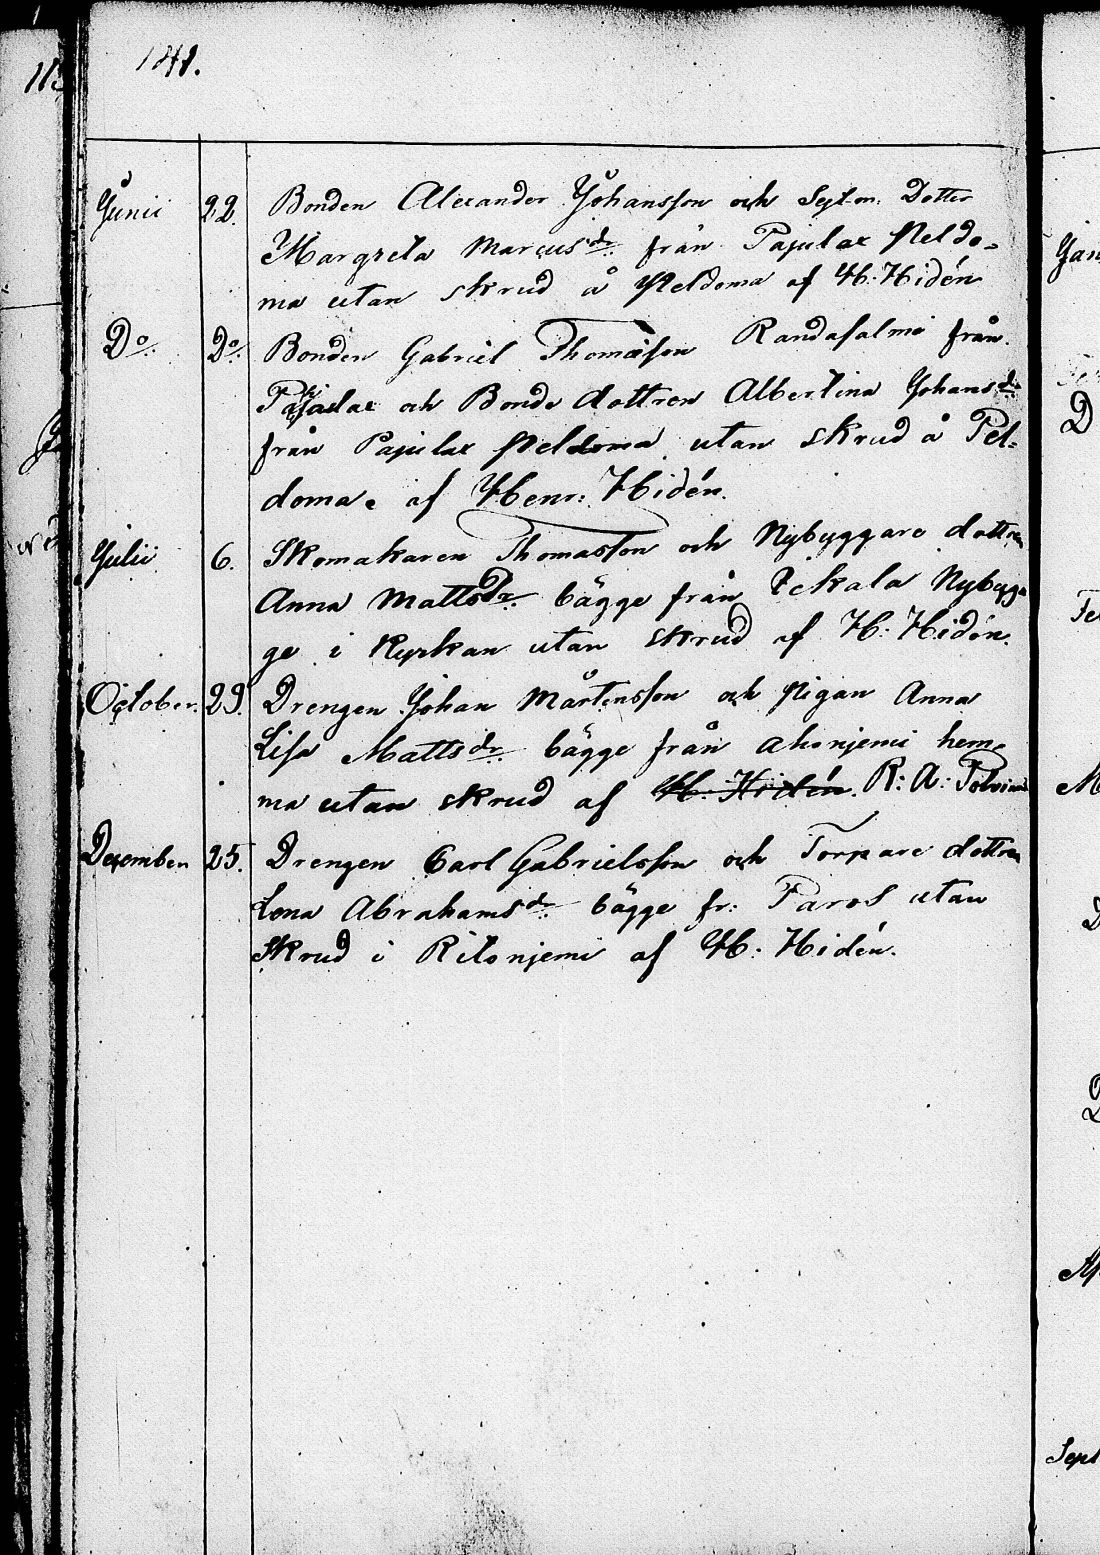 141.
Junii 22. Bonden Alexander Johansson och Dotter
Margreta Marcusdr. från Pajulax Peldo-
ma utan skrud å Peldoma af H. Hidén
Do. Do. Bonden Gabriel Thomasson Randasalmi från
och Bonde dottren Albertina Johansdr
från Pajulax Peldoma utan skrud å Pel-
doma. af Henr: Hidén.
Julii 6. Skomakaren Thomasson och Nybyggare dottren
Anna Mattsdr. bägge från Nybyg-
ge i Kyrkan utan skrud af H: Hidén.
October. 29. Drengen Johan Mårtensson och Pigan Anna
Lisa Mattsdr. bägge från Ahonjemi hem-
ma utan skrud af H. Hidén. R: A:
December 25. Drengen Carl Gabrielsson och Torpare dottren
Lena Abrahamsdr. bägge fr: Paros utan
Skrud i Ritonjemi af H. Hidén.